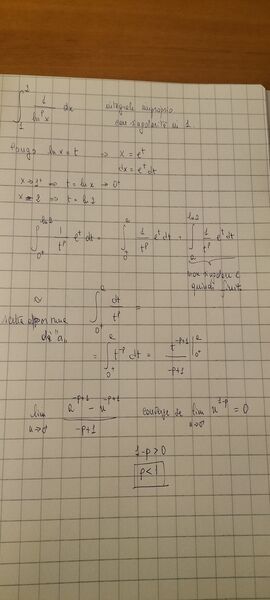 ∫_1^2 1/ln^p x dx integrale improprio
con singolarità in 1
Pongo ln x = t ⇒ x = e^t
dx = e^t dt
x→1^+ ⇒ t = ln x → 0^+
x = 2 ⇒ t = ln 2
∫_{0^+}^{ln 2} 1/t^p e^t dt = ∫_{0^+}^{a} 1/t^p e^t dt + ∫_a^{ln 2} 1/t^p e^t dt
non singolare e
quindi finito
∼ ∫_{0^+}^{a} dt/t^p =
di "a"
= ∫_{0^+}^{a} t^{-p} dt = t^{-p+1}/(-p+1) |_{0^+}^{a}
lim_{u→0^+} (a^{-p+1} - u^{-p+1})/(-p+1) converge se lim_{u→0^+} u^{1-p} = 0
1-p>0
p<1